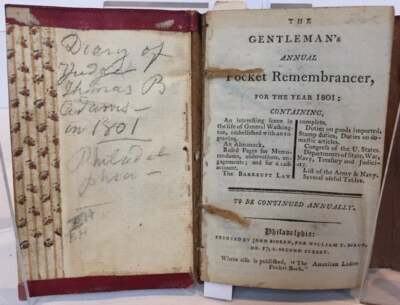 Diary of
Judge
Thomas B
Adams
in 1801
Philadel
phia
THE
GENTLEMAN's
ANNUAL
Pocket Remembrancer,
FOR THE YEAR 1801:
CONTAINING,
An interesting scene in
the life of General Washing-
ton, embellished with an en-
graving.
An Almanack,
Ruled Pages for Memo-
randums, observations, en-
gagements; and for a cash
account.
The BANKRUPT LAW
complete,
Duties on goods imported,
Stamp duties, Duties on do-
mestic articles.
Congress of the U. States
Departments of State, War,
Navy, Treasury and Judicia-
ry.
List of the Army & Navy.
Several useful Tables.
TO BE CONTINUED ANNUALLY.
Philadelphia:
PRINTED BY JOHN BIOREN, FOR WILLIAM Y. BIRCH,
NO. 17, S. SECOND STREET.
Where also is published, "The American Ladies
Pocket-Book."